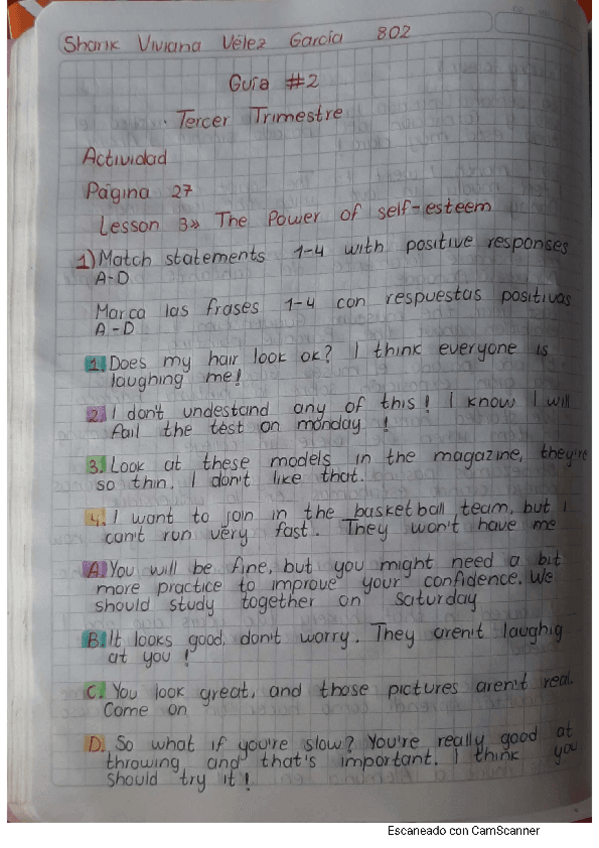 Sharik Viviana Vélez García 802
Guía #2
· Tercer Trimestre
Actividad
Página 27
Lesson 3» The Power of self-esteem
1) Match statements 1-4 with positive responses
A-D
Marca las frases 1-4 con respuestas positivas
A-D
1. Does my hair look ok? I think everyone is
laughing me!
2. I don't undestand any of this! I know I will
fail the test on monday !
3. Look at these models in the magazine, they're
so thin. I don't like that.
4. I want to join in the basketball team, but I
can't run very fast. They won't have me
A. You will be fine, but you might need a bit
more practice to improve your confidence. We
should study together on Saturday
B. It looks good, don't worry. They aren't laughig
at you !
C. You look great, and those pictures aren't real.
Come on
D. So what if you're slow? You're really good at
throwing, and that's important. I think you
should try it!
Escaneado con CamScanner